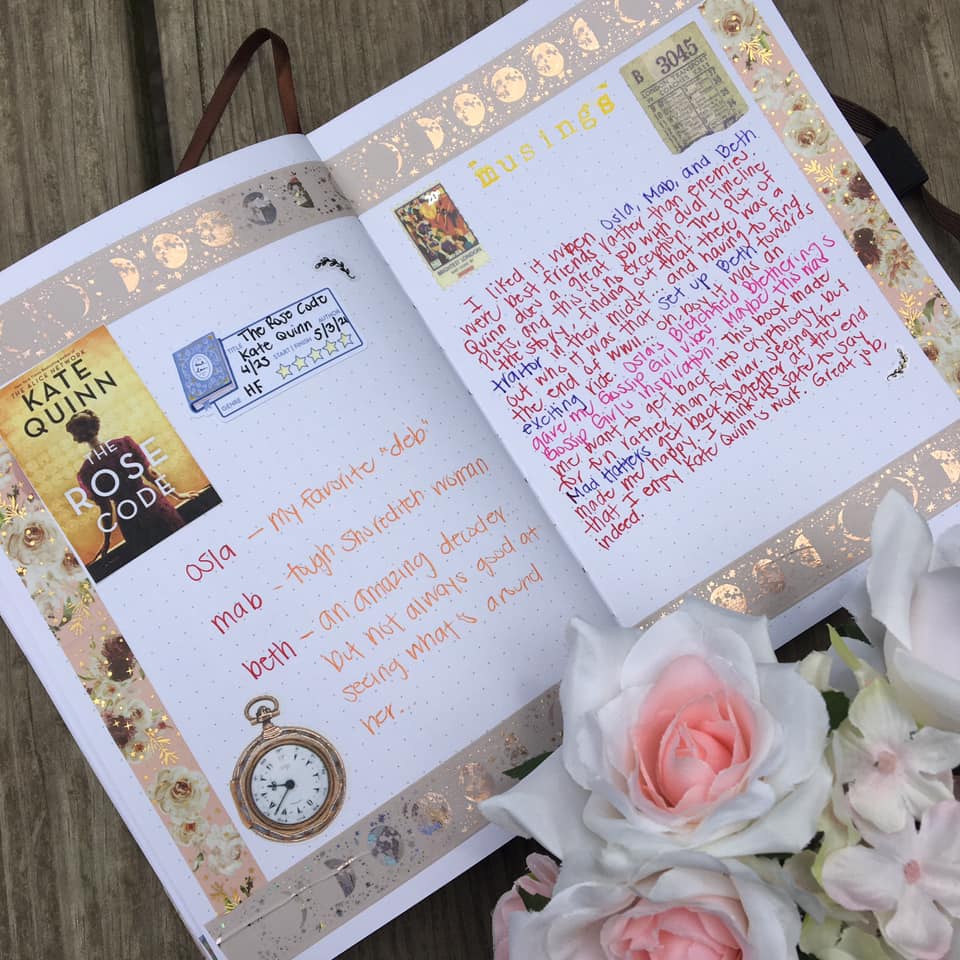 THE ALICE NETWORK
KATE
QUINN
THE
ROSE
CODE
TITLE The Rose Code
Kate Quinn AUTHOR
START | FINISH
4/23 5/3/21
GENRE HF
osla - my favorite "deb"
mab - tough shoreditch woman
beth - an amazing decoder
but not always good at
seeing what's around
her...
musings
B 3045
BRIGHTEST LONDON
I liked it when Osla, Mab, and Beth
were best friends rather than enemies.
Quinn does a great job with dual timeline
plots, and this is no exception. The plot of
the story, finding out that there was a
traitor in their midst and having to find
out who it was that set up Beth towards
the end of WWII... oh boy, it was an
exciting ride. Osla's Bletchfield Bletherings
gave me Gossip Girl vibes - maybe this was
Gossip Girl's inspiration? The book made
me want to get back into cryptology, but
for fun rather than for war. Seeing the
Mad Hatters get back together at the end
made me happy. I think it's safe to say
that I enjoy Kate Quinn's work. Great job,
indeed.